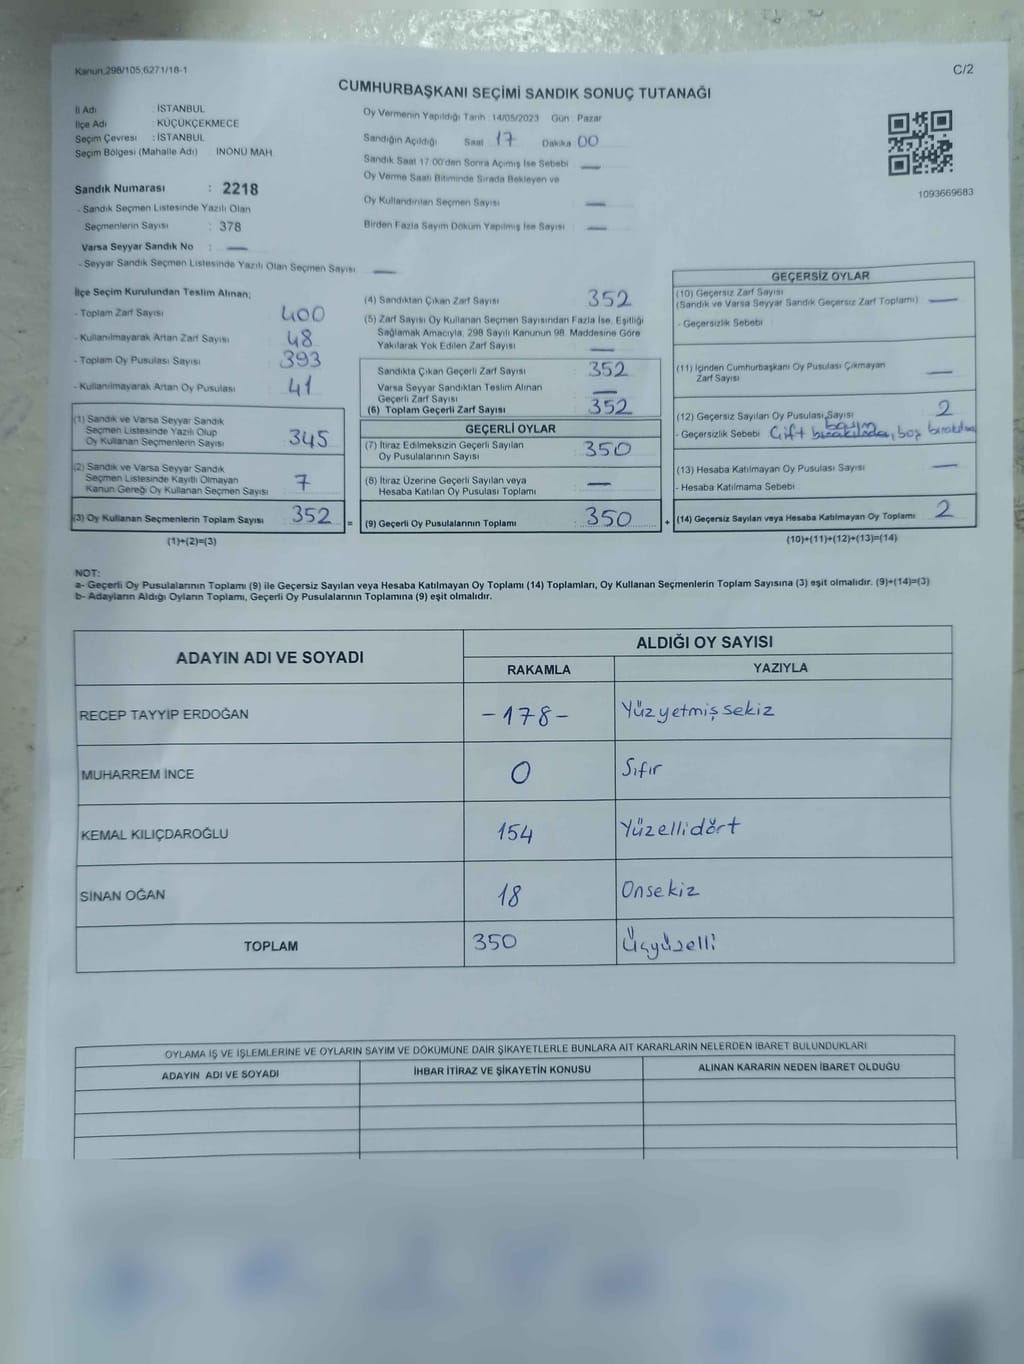 Kanun,298/105,6271/18-1
C/2
CUMHURBAŞKANI SEÇİMİ SANDIK SONUÇ TUTANAĞI
İl Adı : İSTANBUL
İlçe Adı : KÜÇÜKÇEKMECE
Seçim Çevresi : İSTANBUL
Seçim Bölgesi (Mahalle Adı) İNÖNÜ MAH.
Sandık Numarası : 2218
- Sandık Seçmen Listesinde Yazılı Olan
Seçmenlerin Sayısı : 378
Varsa Seyyar Sandık No : —
- Seyyar Sandık Seçmen Listesinde Yazılı Olan Seçmen Sayısı —
Oy Vermenin Yapıldığı Tarih : 14/05/2023 Gün : Pazar
Sandığın Açıldığı Saat 17 Dakika 00
Sandık Saat 17:00'den Sonra Açılmış İse Sebebi —
Oy Verme Saati Bitiminde Sırada Bekleyen ve
Oy Kullandırılan Seçmen Sayısı —
Birden Fazla Sayım Döküm Yapılmış İse Sayısı —
1093669683
İlçe Seçim Kurulundan Teslim Alınan;
- Toplam Zarf Sayısı 400
- Kullanılmayarak Artan Zarf Sayısı 48
- Toplam Oy Pusulası Sayısı 393
- Kullanılmayarak Artan Oy Pusulası 41
(1) Sandık ve Varsa Seyyar Sandık
Seçmen Listesinde Yazılı Olup
Oy Kullanan Seçmenlerin Sayısı 345
(2) Sandık ve Varsa Seyyar Sandık
Seçmen Listesinde Kayıtlı Olmayan
Kanun Gereği Oy Kullanan Seçmen Sayısı 7
(3) Oy Kullanan Seçmenlerin Toplam Sayısı 352 =
(1)+(2)=(3)
(4) Sandıktan Çıkan Zarf Sayısı 352
(5) Zarf Sayısı Oy Kullanan Seçmen Sayısından Fazla İse, Eşitliği
Sağlamak Amacıyla, 298 Sayılı Kanunun 98. Maddesine Göre
Yakılarak Yok Edilen Zarf Sayısı —
Sandıkta Çıkan Geçerli Zarf Sayısı 352
Varsa Seyyar Sandıktan Teslim Alınan
Geçerli Zarf Sayısı —
(6) Toplam Geçerli Zarf Sayısı 352
GEÇERLİ OYLAR
(7) İtiraz Edilmeksizin Geçerli Sayılan
Oy Pusulalarının Sayısı 350
(8) İtiraz Üzerine Geçerli Sayılan veya
Hesaba Katılan Oy Pusulası Toplamı —
(9) Geçerli Oy Pusulalarının Toplamı : 350 +
GEÇERSİZ OYLAR
(10) Geçersiz Zarf Sayısı
(Sandık ve Varsa Seyyar Sandık Geçersiz Zarf Toplamı) —
- Geçersizlik Sebebi
(11) İçinden Cumhurbaşkanı Oy Pusulası Çıkmayan
Zarf Sayısı —
(12) Geçersiz Sayılan Oy Pusulası Sayısı 2
- Geçersizlik Sebebi Çift boş
(13) Hesaba Katılmayan Oy Pusulası Sayısı —
- Hesaba Katılmama Sebebi
(14) Geçersiz Sayılan veya Hesaba Katılmayan Oy Toplamı 2
(10)+(11)+(12)+(13)=(14)
NOT:
a- Geçerli Oy Pusulalarının Toplamı (9) ile Geçersiz Sayılan veya Hesaba Katılmayan Oy Toplamı (14) Toplamları, Oy Kullanan Seçmenlerin Toplam Sayısına (3) eşit olmalıdır. (9)+(14)=(3)
b- Adayların Aldığı Oyların Toplamı, Geçerli Oy Pusulalarının Toplamına (9) eşit olmalıdır.
ADAYIN ADI VE SOYADI
ALDIĞI OY SAYISI
RAKAMLA YAZIYLA
RECEP TAYYİP ERDOĞAN -178- Yüzyetmişsekiz
MUHARREM İNCE 0 Sıfır
KEMAL KILIÇDAROĞLU 154 Yüzellidört
SİNAN OĞAN 18 Onsekiz
TOPLAM 350 Üçyüzelli
OYLAMA İŞ VE İŞLEMLERİNE VE OYLARIN SAYIM VE DÖKÜMÜNE DAİR ŞİKAYETLERLE BUNLARA AİT KARARLARIN NELERDEN İBARET BULUNDUKLARI
ADAYIN ADI VE SOYADI İHBAR İTİRAZ VE ŞİKAYETİN KONUSU ALINAN KARARIN NEDEN İBARET OLDUĞU